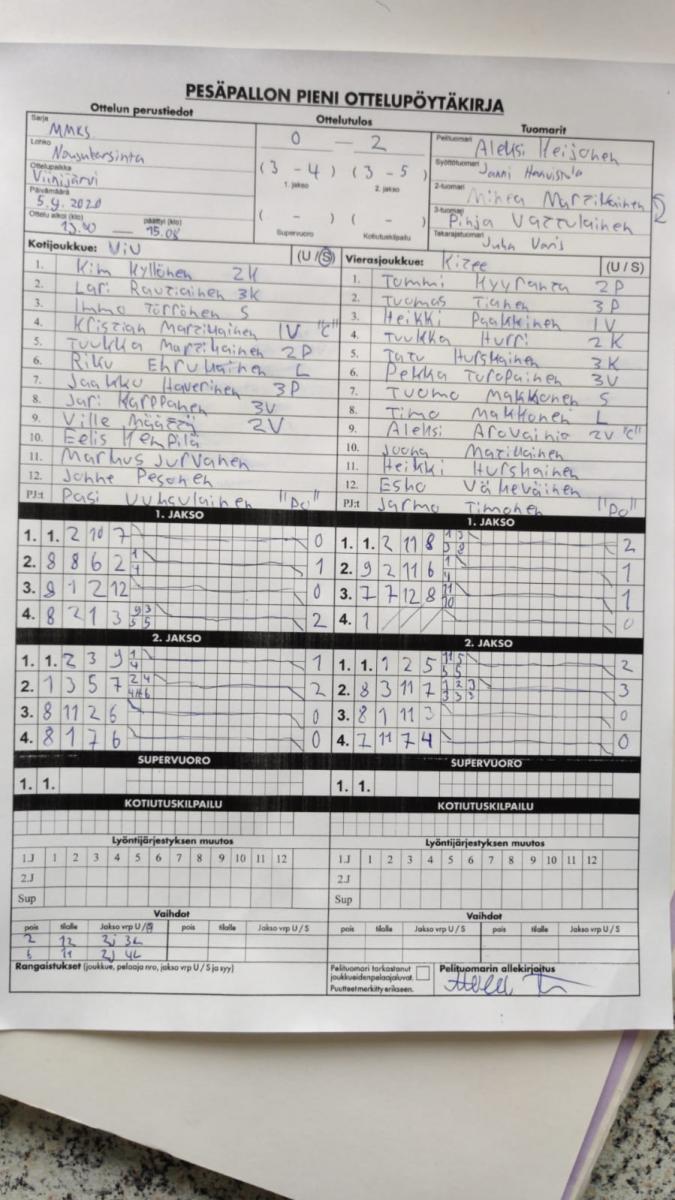 PESÄPALLON PIENI OTTELUPÖYTÄKIRJA
Ottelun perustiedot
Ottelutulos
Tuomarit
Sarja MMKS
Lohko Nousukarsinta
Ottelupaikka Viinijärvi
Päivämäärä 5.9.2020
Ottelu alkoi (klo) päättyi (klo)
13.00 — 15.08
0 — 2
(3 - 4) (3 - 5)
1. jakso 2. jakso
( - ) ( - )
Supervuoro Kotiutuskilpailu
Pelituomari Aleksi Heijonen
Syöttötuomari Janni
2-tuomari Minea Martikainen
3-tuomari Pinja Vattulainen
Takarajatuomari Juha Varis
Kotijoukkue: ViU (U / S)
1. Kim Kyllönen 2K
2. Lari Rautiainen 3K
3. Immo Törrönen S
4. Kristian Martikainen 1V "C"
5. Tuukka Martikainen 2P
6. Riku Ehrukainen L
7. Jaakko Haverinen 3P
8. Jari Karppanen 3V
9. Ville Määttä 2V
10. Eelis Kempilä
11. Markus Jurvanen
12. Janne Pesonen
PJ:t Pasi Vuksulainen "Po"
Vierasjoukkue: Kitee (U / S)
1. Tommi Hyyranta 2P
2. Tuomas Tianen 3P
3. Heikki Paakkinen 1V
4. Tuukka Hurri 2K
5. Tatu Hurskainen 3K
6. Pekka Turopainen 3V
7. Tuomo Makkonen S
8. Timo Makkonen L
9. Aleksi Arovainio 2V "C"
10. Juuha Matikainen
11. Heikki Hurskainen
12. Esko Väkeväinen
PJ:t Jarmo Timonen "Po"
1. JAKSO
1. 1. 2 10 7 0
2. 8 8 6 2 1 4 1
3. 9 1 2 12 0
4. 8 2 1 3 9 3 5 5 2
1. JAKSO
1. 1. 2 11 8 1 3 3 8 2
2. 9 2 11 6 1 4 1
3. 7 7 12 8 11 10 1
4. 1 0
2. JAKSO
1. 1. 2 3 9 1 4 1
2. 1 3 5 7 2 4 2
3. 8 11 2 6 0
4. 8 1 7 6 0
2. JAKSO
1. 1. 1 2 5 11 5 5 5 2
2. 8 3 11 7 1 2 3 3 3 3 3
3. 8 1 11 3 0
4. 2 11 7 4 0
SUPERVUORO
1. 1.
SUPERVUORO
1. 1.
KOTIUTUSKILPAILU
KOTIUTUSKILPAILU
Lyöntijärjestyksen muutos
1.J 1 2 3 4 5 6 7 8 9 10 11 12
2.J
Sup
Lyöntijärjestyksen muutos
1.J 1 2 3 4 5 6 7 8 9 10 11 12
2.J
Sup
Vaihdot
pois tilalle Jakso vrp U / S pois tilalle Jakso vrp U / S
2 12 2j 3L
6 11 2j 4L
Vaihdot
pois tilalle Jakso vrp U / S pois tilalle Jakso vrp U / S
Rangaistukset (joukkue, pelaaja nro, jakso vrp U / S ja syy)
Pelituomari tarkastanut
joukkueidenpelaajaluvat.
Puutteet merkitty erikseen.
Pelituomarin allekirjoitus